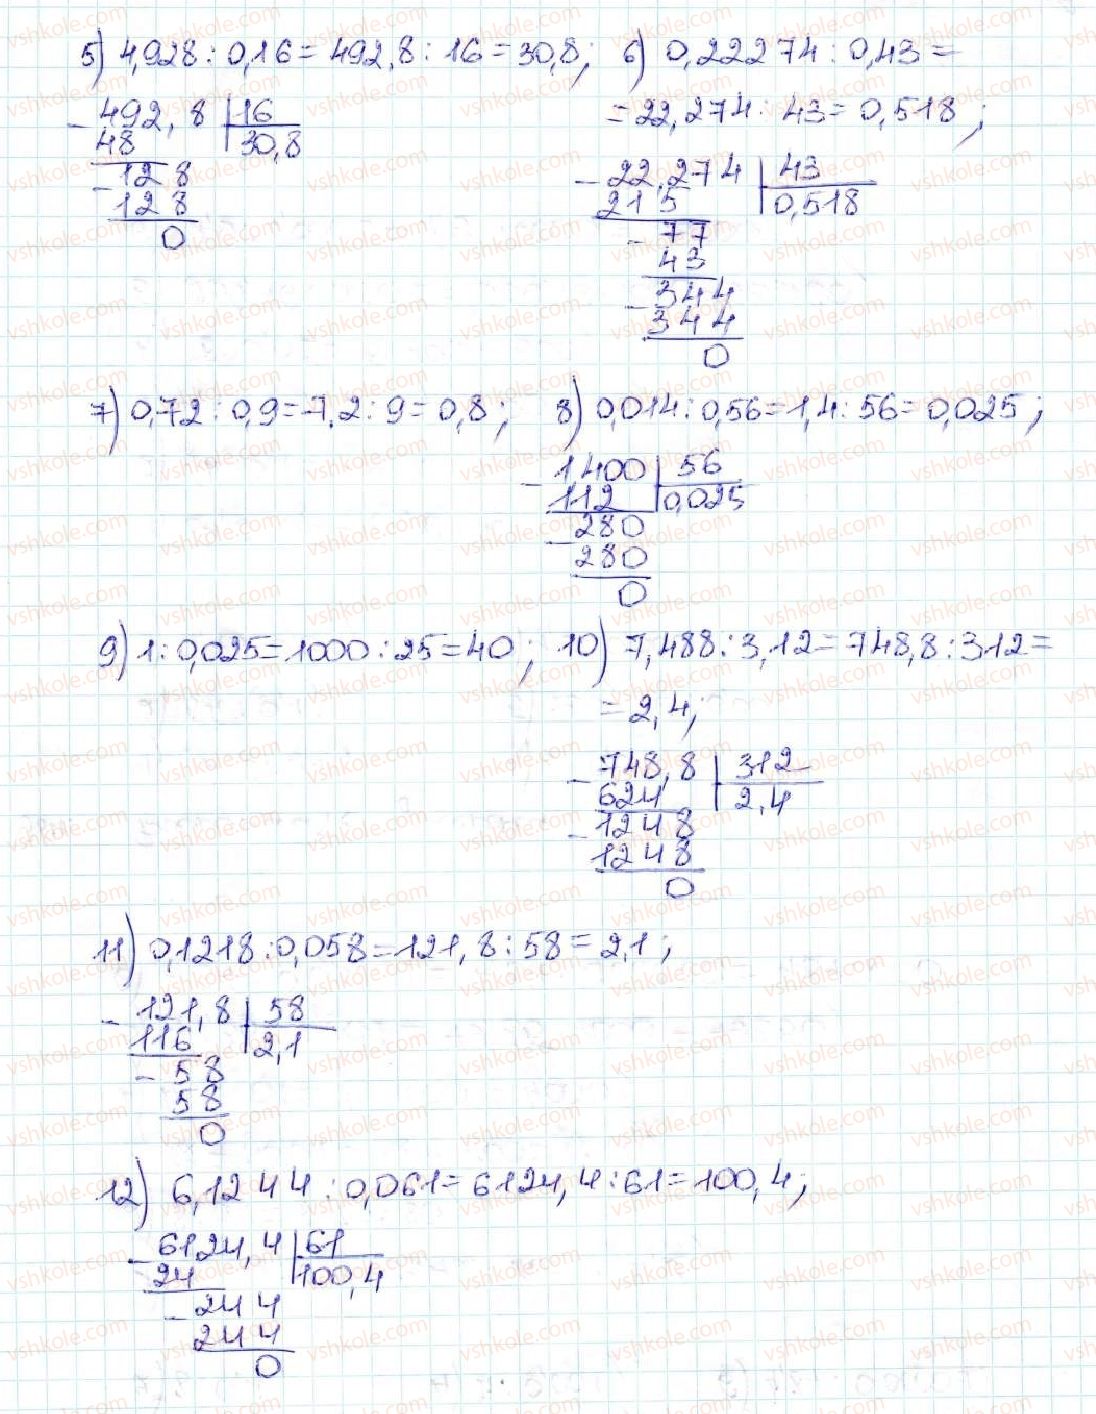 5) 4,928 : 0,16 = 492,8 : 16 = 30,8; 6) 0,22274 : 0,43 =
= 22,274 : 43 = 0,518;
- 492,8 | 16
48 | 30,8
- 128
128
0
- 22,274 | 43
215 | 0,518
- 77
43
- 344
344
0
7) 0,72 : 0,9 = 7,2 : 9 = 0,8; 8) 0,014 : 0,56 = 1,4 : 56 = 0,025;
- 1,400 | 56
112 | 0,025
- 280
280
0
9) 1 : 0,025 = 1000 : 25 = 40; 10) 7,488 : 3,12 = 748,8 : 312 =
= 2,4;
- 748,8 | 312
624 | 2,4
- 1248
1248
0
11) 0,1218 : 0,058 = 121,8 : 58 = 2,1;
- 121,8 | 58
116 | 2,1
- 58
58
0
12) 6,1244 : 0,061 = 6124,4 : 61 = 100,4;
- 6124,4 | 61
24 | 100,4
- 244
244
0
vshkole.com